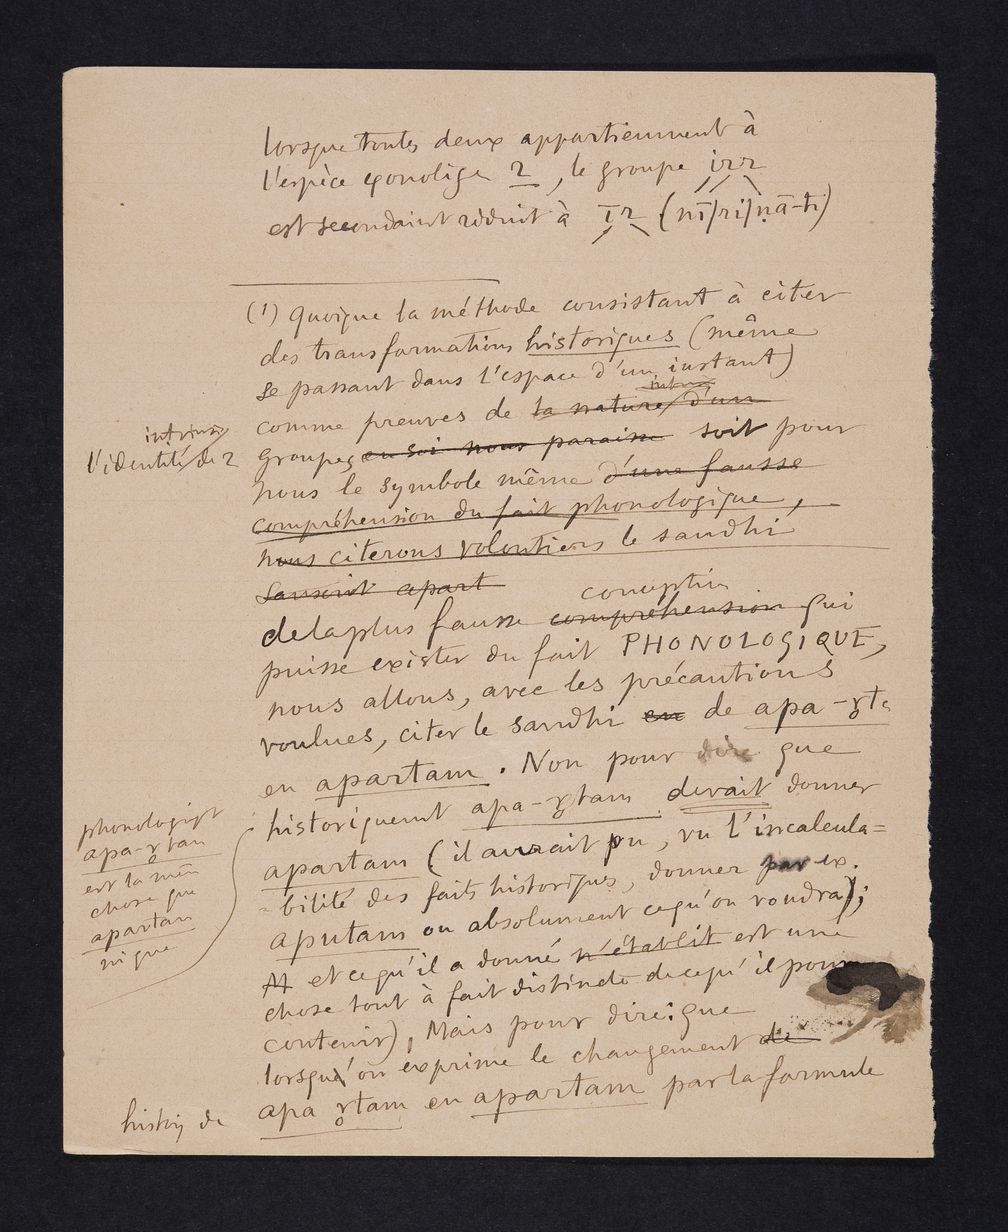 lorsque toutes deux appartiennent à
l'espèce ... 2, le groupe
est secondairt réduit à (nī/ri/ṇā-ti)
(1) Quoique la méthode consistant à citer
des transformations historiques (même
se passant dans l'espace d'un instant)
comme preuves de la nature d'un
intrinsèq
l'identité de 2
groupes en soi nous paraisse soit pour
nous le symbole même d'une fausse
compréhension du fait phonologique,
nous citerons volontiers le sandhi
sanscrit apart
conception
de la plus fausse compréhension qui
puisse exister du fait PHONOLOGIQUE,
nous allons, avec les précautions
voulues, citer le sandhi en de apa-r̥ta
en apartam. Non pour dire que
historiquemt apa-r̥tam devait donner
apartam (il aurait pu, vu l'incalcula=
=bilité des faits historiques, donner par ex.
aputam ou absolument ce qu'on voudra);
et ce qu'il a donné n'établit est une
chose tout à fait distincte de ce qu'il
contenir), Mais pour dire: que
lorsqu'on exprime le changement de
apa r̥tam en apartam par la formule
phonologiqt
apa-r̥tam
est la mêm
chose que
apartam
histoiq de